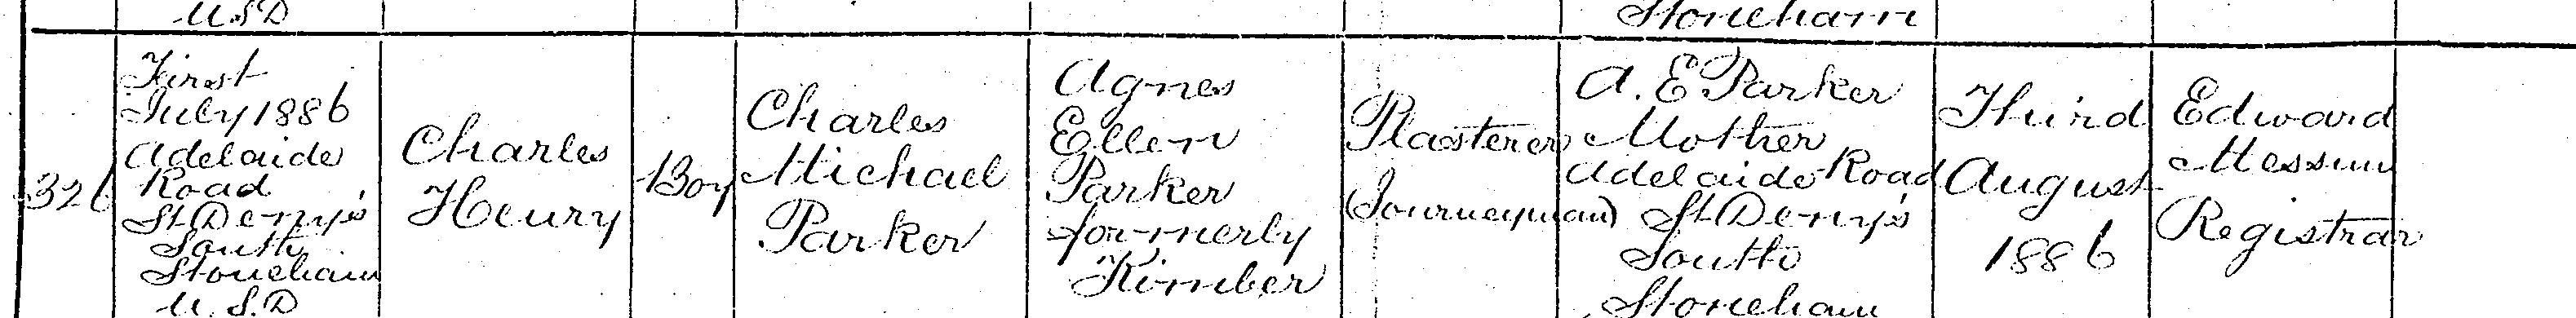 U.S.D
Stoneham
326
First
July 1886
Adelaide
Road
St Deny's
South
Stoneham
U.S.D
Charles
Henry
Boy
Charles
Michael
Parker
Agnes
Ellen
Parker
formerly
Kimber
Plasterer
(Journeyman)
A. E Parker
Mother
Adelaide Road
St Deny's
South
Stoneham
Third
August
1886
Edward
Messum
Registrar